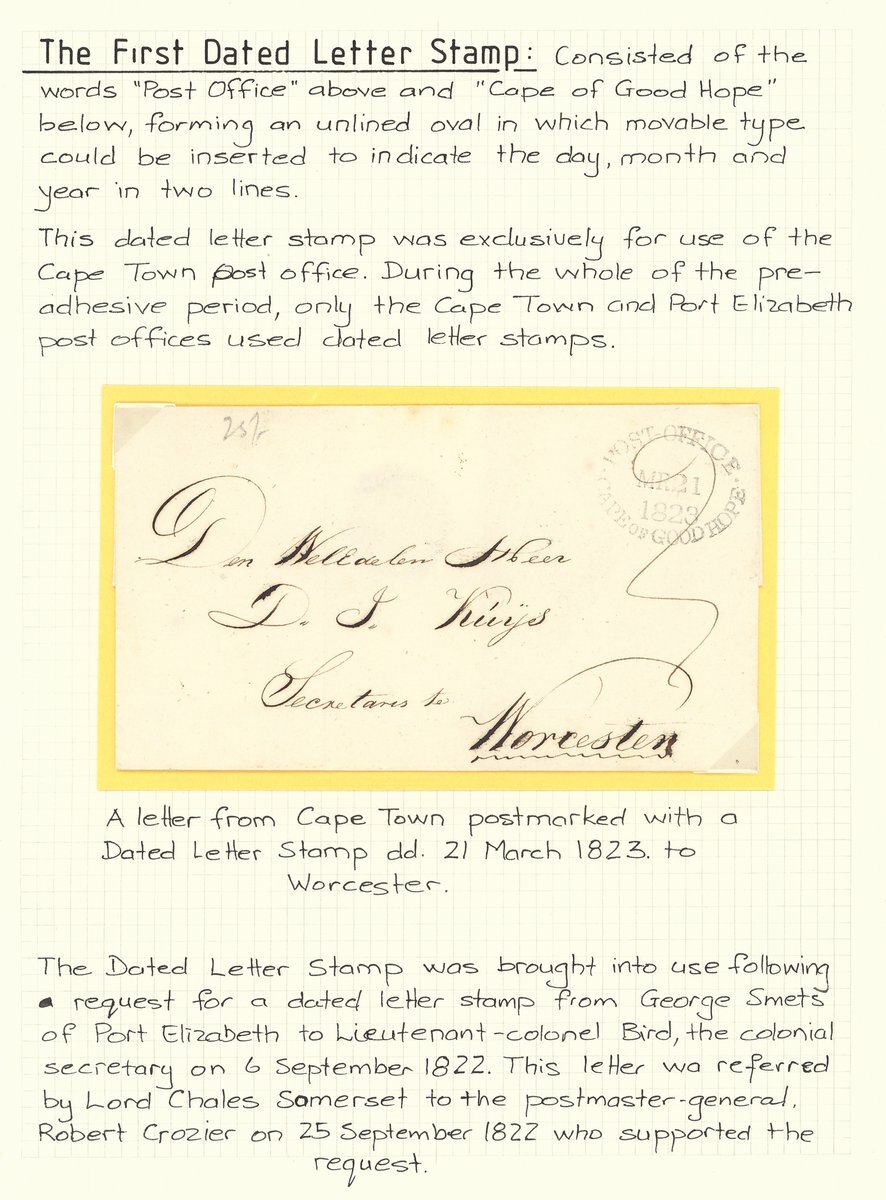 The First Dated Letter Stamp: Consisted of the
words "Post Office" above and "Cape of Good Hope"
below, forming an unlined oval in which movable type
could be inserted to indicate the day, month and
year in two lines.
This dated letter stamp was exclusively for use of the
Cape Town post office. During the whole of the pre-
adhesive period, only the Cape Town and Port Elizabeth
post offices used dated letter stamps.
POST-OFFICE
MR21
1823
CAPE OF GOOD HOPE
Den WelEdelen Heer
D. J. Kúijs
Secretaris te
Worcester
A letter from Cape Town postmarked with a
Dated Letter Stamp dd. 21 March 1823. to
Worcester.
The Dated Letter Stamp was brought into use following
a request for a dated letter stamp from George Smets
of Port Elizabeth to Lieutenant-colonel Bird, the colonial
secretary on 6 September 1822. This letter wa referred
by Lord Chales Somerset to the postmaster-general,
Robert Crozier on 25 September 1822 who supported the
request.